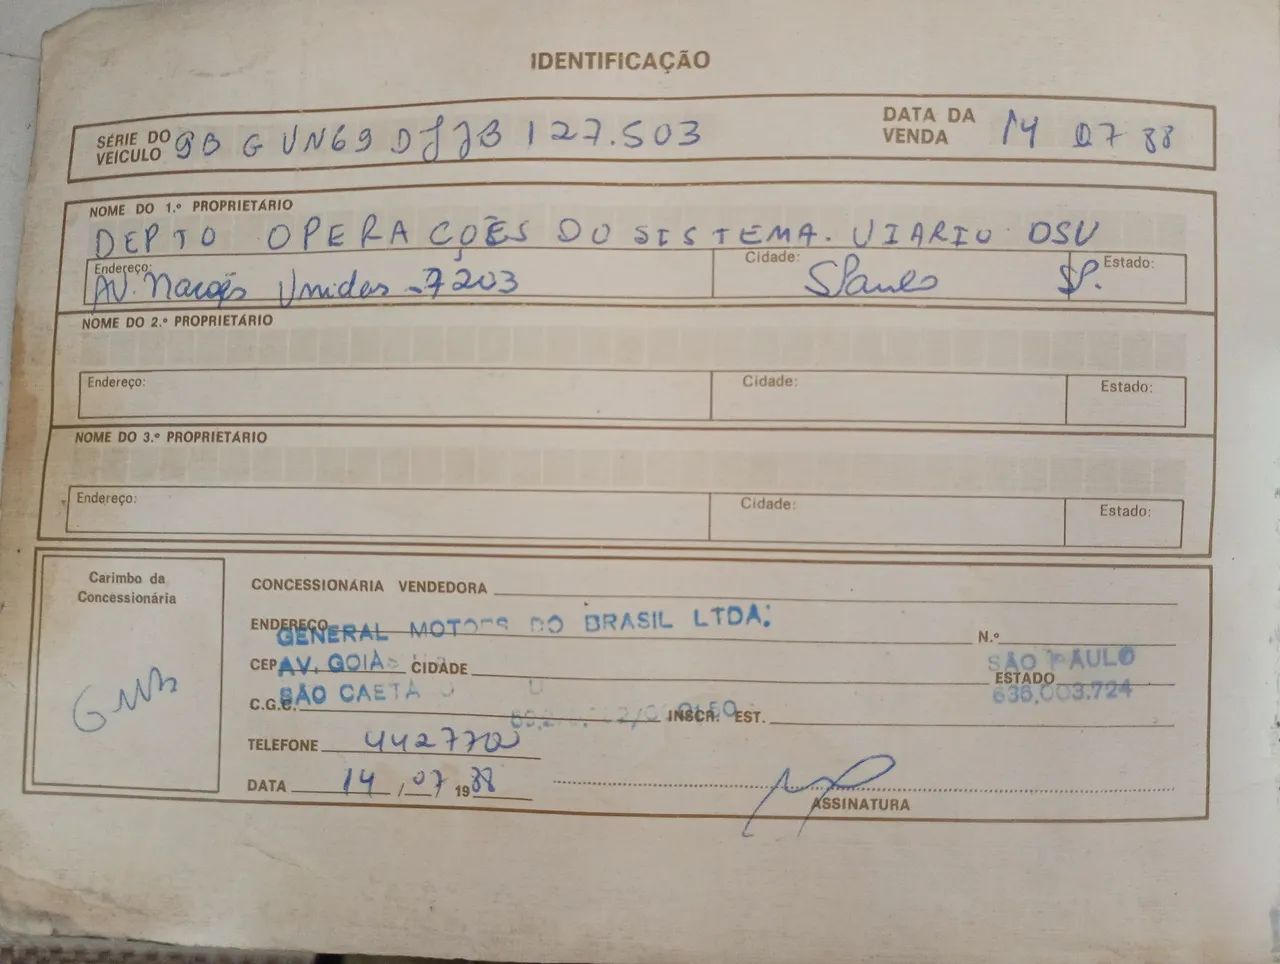 IDENTIFICAÇÃO
SÉRIE DO VEÍCULO 9B G VN69 DJJB 127.503 DATA DA VENDA 14 07 88
NOME DO 1.º PROPRIETÁRIO
DEPTO OPERAÇÕES DO SISTEMA. VIÁRIO DSV
Endereço: AV. Nações Unidas 7203 Cidade: SPaulo Estado: SP.
NOME DO 2.º PROPRIETÁRIO
Endereço: Cidade: Estado:
NOME DO 3.º PROPRIETÁRIO
Endereço: Cidade: Estado:
Carimbo da
Concessionária
GMB
CONCESSIONÁRIA VENDEDORA
GENERAL MOTORS DO BRASIL LTDA.
ENDEREÇO N.º
AV. GOIÁS SÃO PAULO
CEP CIDADE ESTADO
SÃO CAETA 636.003.724
C.G.C. INSCR. EST.
TELEFONE 442770
DATA 14 / 07 1988
ASSINATURA